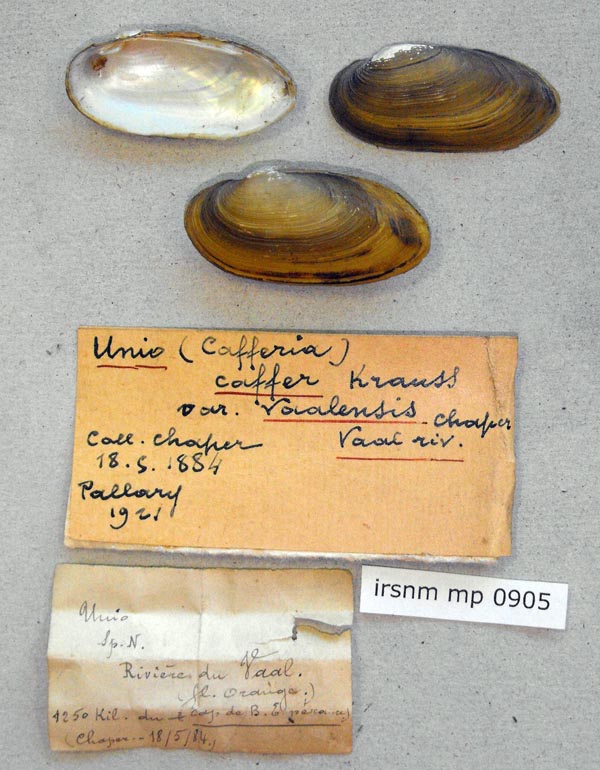 Unio (Cafferia)
caffer Krauss
var. Vaalensis Chaper
Coll. Chaper Vaal riv.
18.5.1884
Pallary
1921
irsnm mp 0905
Unio
Sp. N.
Rivières du Vaal.
(fl. Orange.)
1250 Kil. du Cap de B. Espérance
(Chaper - 18/5/84.)